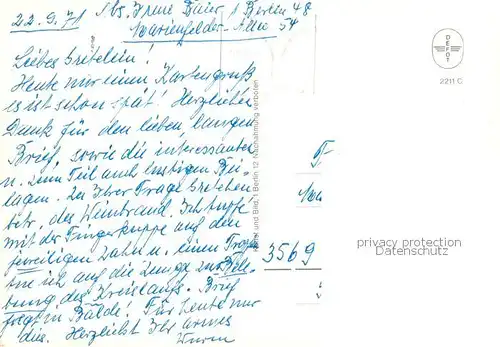 22.9.71 Abs. Irene Baier, 1 Berlin 48
Marienfelder-Allee 54
Liebes Gretelein!
Heute nur einen Kartengruß
es ist schon spät! Herzlichen
Dank für den lieben langen
Brief, sowie die interessanten
u. zum Teil auch lustigen Bei-
lagen. Zu Ihrer Frage Gretelchen
betr. des Weinbrand. Ich tupfe
mit der Fingerkuppe auf den
jeweiligen Zahn u. einen Tropfen
tue ich auf die Zunge zur Bele-
bung des Kreislaufs. Brief
folgt in Bälde! Für heute nur
dies. Herzlichst Ihr armes
Wurm
Kunst und Bild, 1 Berlin 12 Nachahmung verboten
3569
DEFOT
2211 C
privacy protection
Datenschutz